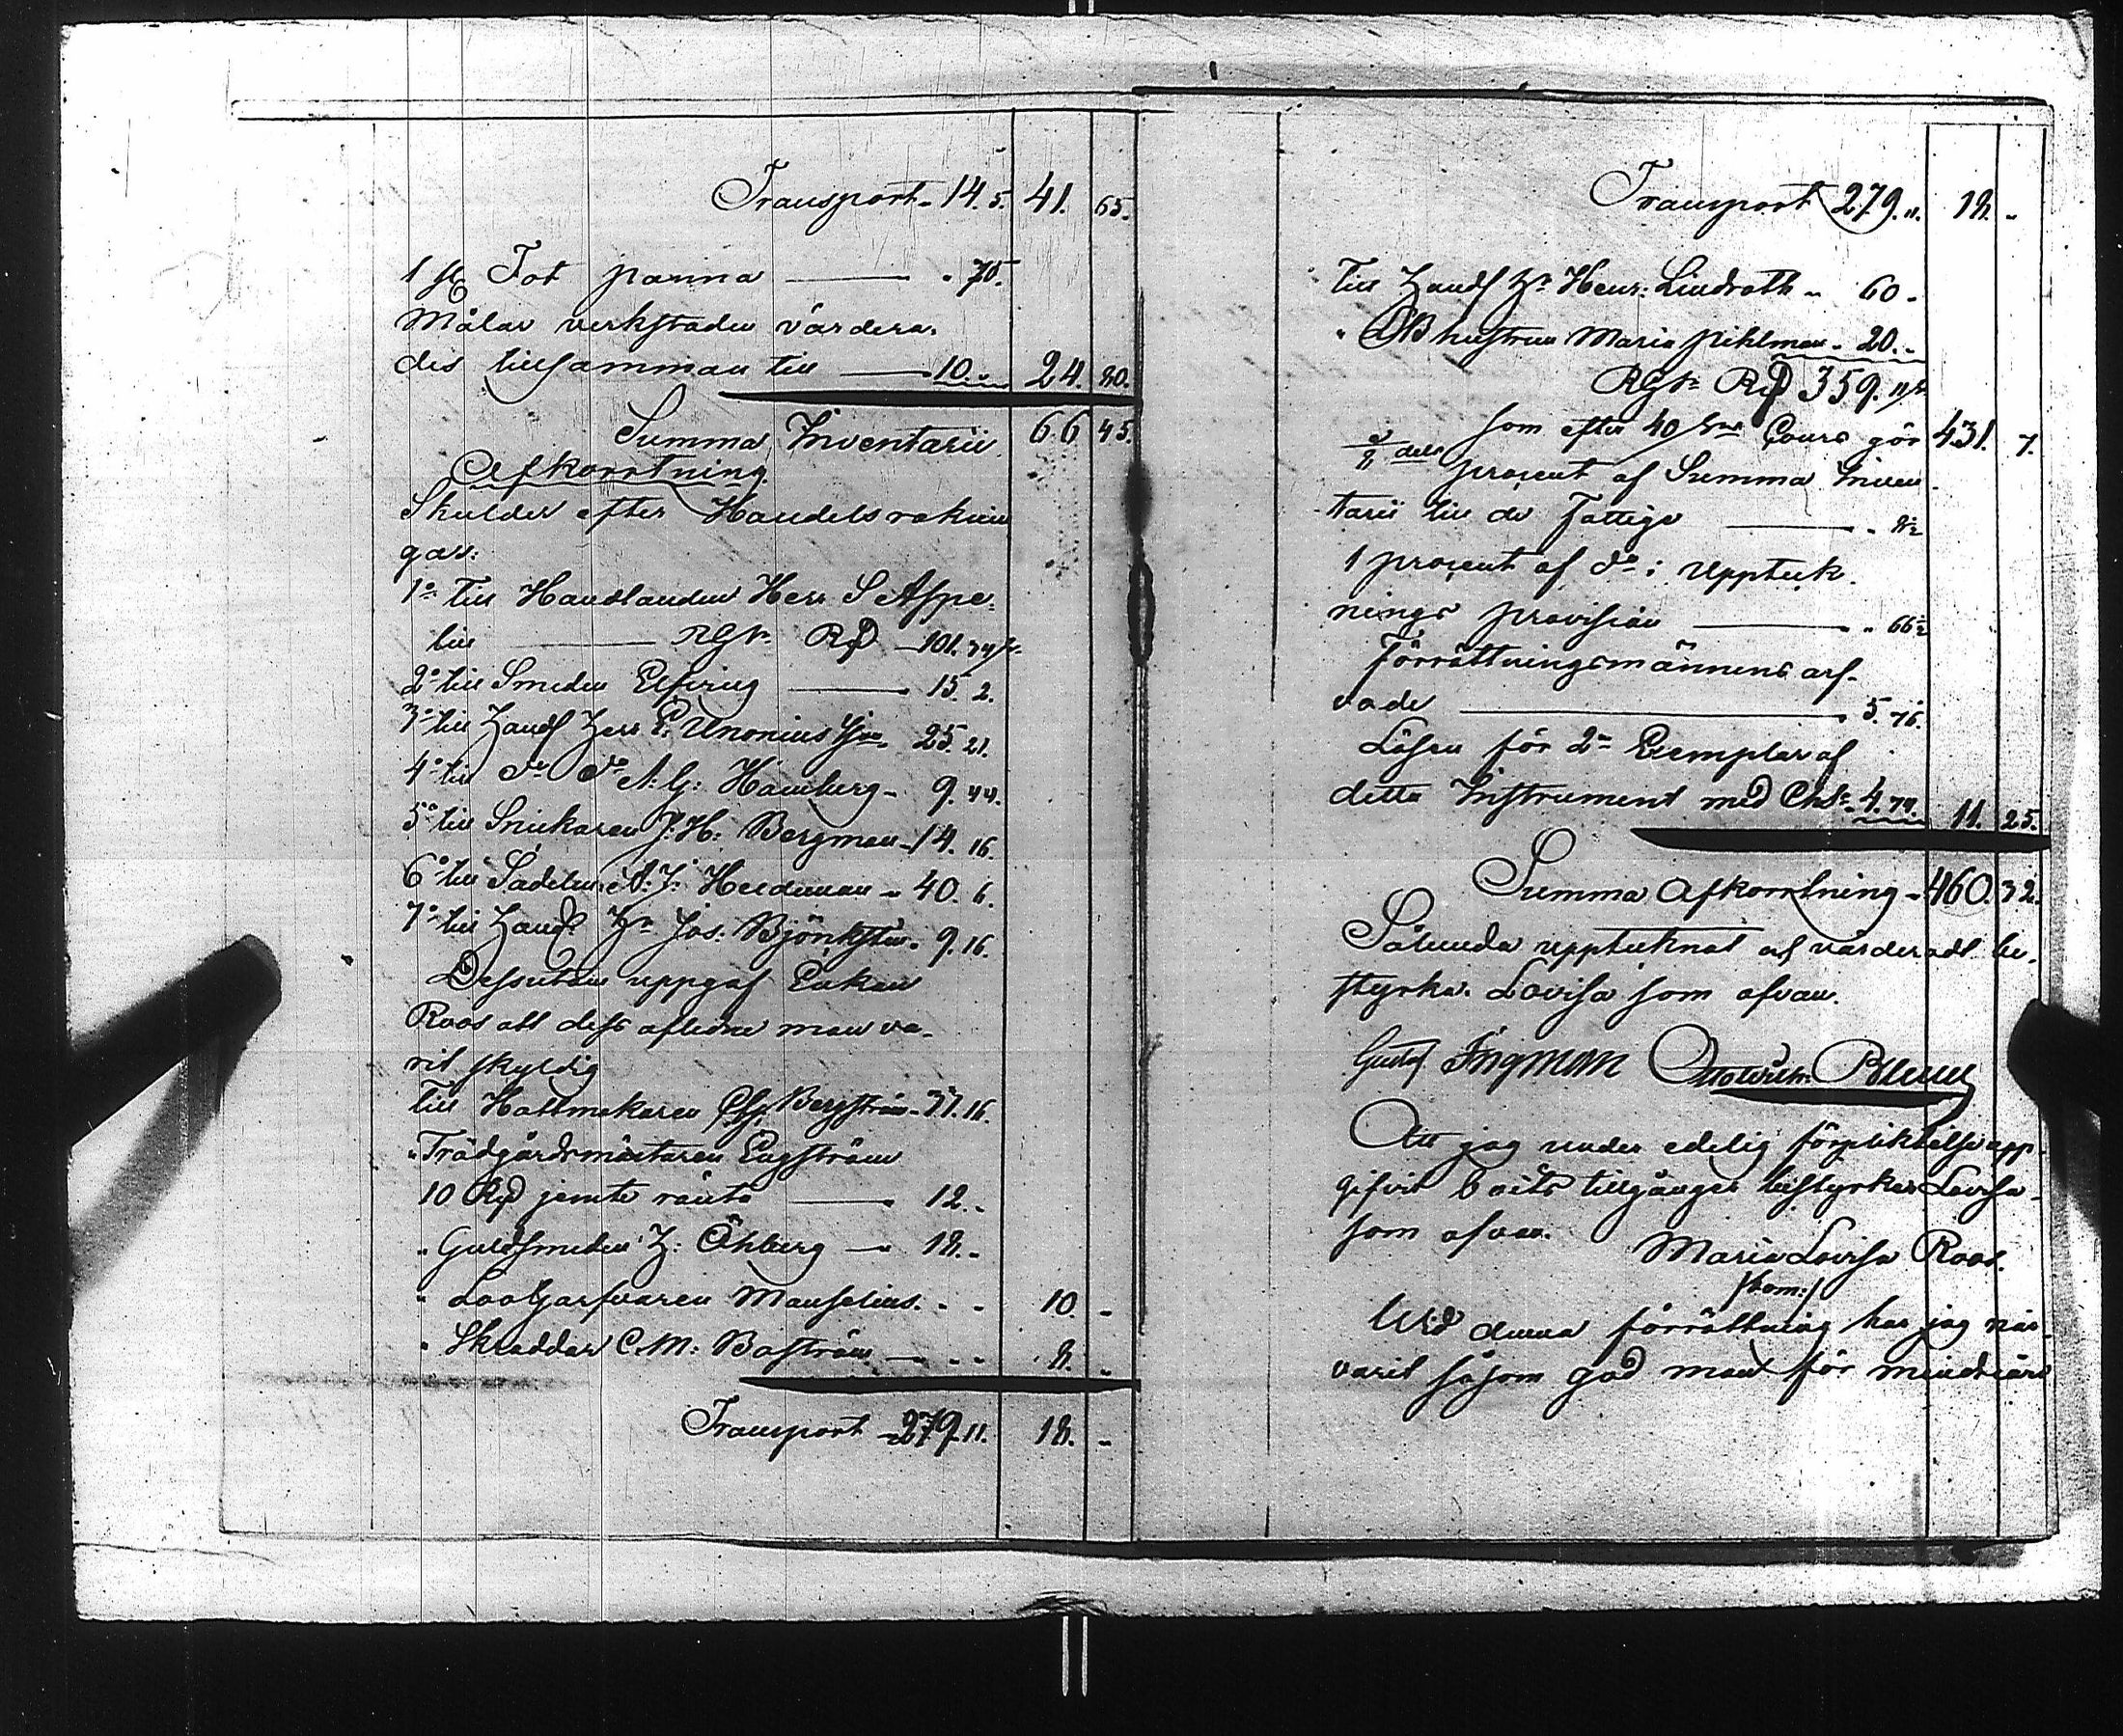 Transport - 14. 5. 41. 65.
1 st Fot panna — " 75.
Målar verkstaden värdera-
des tillsamman till — 10. " 24. 80.
Summa Inventarii. 66 45.
Afkorrtning.
Skulder efter Handelsräknin
gar:
1o till Handlanden Herr S Aspe-
lin — RGs Rd — 101.
2o till Smeden Elfving — 15. 2.
3o till Handl Herr E. Unonius — 25. 21.
4o till do do A: G: Hamberg - 9. 44.
5o till Snickaren J: H: Bergman - 14. 16.
6o till Sadelm: A: J: Heedman - 40. 6.
7o till Handl Hr Jos: Björksten - 9. 16.
Dessutom uppgaf Enkan
Roos att dess aflidne man va-
rit skyldig
till Hattmakaren Bergström - 37. 16.
" Trädgårdsmästaren Engström
10 Rd jemte ränta — 12. -
" Guldsmeden H: Öhberg — 18. -
" Lootgarfvaren Manselius. - - 10 -
" Skraddar C. M: Boström — - - 8. -
Transport - 279. 11. 18. -
Transport 279. 11. 18. -
till Handl Hr Henr: Lindroth - 60 -
" hustrun Maria Pihlman - 20. -
RGs Rd 359. 11
som efter 40 Cours gör 431. 7.
1/8 dels procent af Summa Inven-
tarii till de Fattige — " 8½
1 procent af do i Uppteck-
nings provision — " 66½
Förrättningsmännens arf-
vode — 5. 76.
Lösen för 2ne Exemplar af
detta Instrument med Ch 4. 74. 11. 25.
Summa Afkorrtning - 460. 32.
Sålunda upptecknat af värderadt be-
styrka. Lovisa som ofvan.
Gustaf Ingman Otto Wilh:
Att jag under edelig förpliktelse upp-
gifvit boets tillgånger bestyrker Lovisa
som ofvan. Maria Lovisa Roos.
Wid denna förrättning har jag när-
varit såsom god man för minderåri